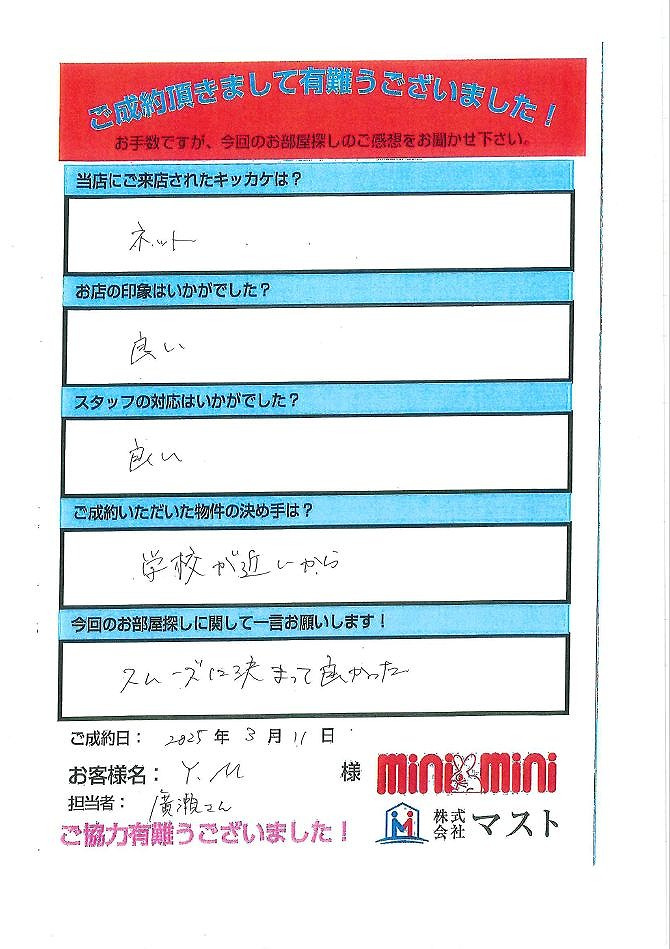 ご成約頂きまして有難うございました！
お手数ですが、今回のお部屋探しのご感想をお聞かせ下さい。
当店にご来店されたキッカケは？
ネット
お店の印象はいかがでした？
良い
スタッフの対応はいかがでした？
良い
ご成約いただいた物件の決め手は？
学校が近いから
今回のお部屋探しに関して一言お願いします！
スムーズに決まって良かった
ご成約日： 2025 年 3 月 11 日
お客様名： Y.M 様
担当者： 廣瀬さん
ご協力有難うございました！
mini mini
株式会社 マスト